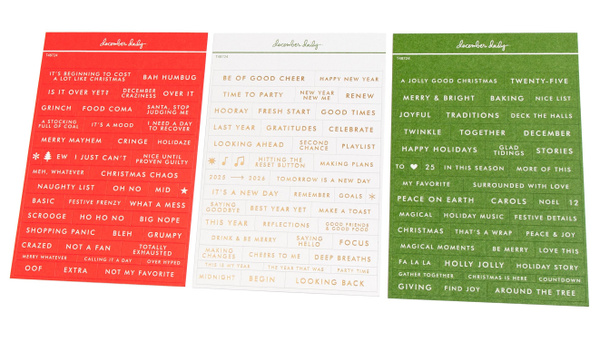 december daily
IT'S BEGINNING TO COST
A LOT LIKE CHRISTMAS
BAH HUMBUG
IS IT OVER YET?
DECEMBER
CRAZINESS
OVER IT
GRINCH
FOOD COMA
SANTA, STOP
JUDGING ME
A STOCKING
FULL OF COAL
IT'S A MOOD
I NEED A DAY
TO RECOVER
MERRY MAYHEM
CRINGE
HOLIDAZE
EW
I JUST CAN'T
NICE UNTIL
PROVEN GUILTY
MEH, WHATEVER
CHRISTMAS CHAOS
NAUGHTY LIST
OH NO
MID
BASIC
FESTIVE FRENZY
WHAT A MESS
SCROOGE
HO HO NO
BIG NOPE
SHOPPING PANIC
BLEH
GRUMPY
CRAZED
NOT A FAN
TOTALLY
EXHAUSTED
MERRY WHATEVER
CALLING IT A DAY
OVER HYPED
OOF
EXTRA
NOT MY FAVORITE
december daily
BE OF GOOD CHEER
HAPPY NEW YEAR
TIME TO PARTY
NEW YEAR
NEW ME
RENEW
HOORAY
FRESH START
GOOD TIMES
LAST YEAR
GRATITUDES
CELEBRATE
LOOKING AHEAD
SECOND
CHANCE
PLAYLIST
HITTING THE
RESET BUTTON
MAKING PLANS
2025 → 2026
TOMORROW IS A NEW DAY
IT'S A NEW DAY
REMEMBER
GOALS
SAYING
GOODBYE
BEST YEAR YET
MAKE A TOAST
THIS YEAR
REFLECTIONS
GOOD FRIENDS
& GOOD FOOD
DRINK & BE MERRY
SAYING
HELLO
FOCUS
MAKING
CHANGES
CHEERS TO ME
DEEP BREATHS
THIS IS MY YEAR
THE YEAR THAT WAS
PARTY TIME
MIDNIGHT
BEGIN
LOOKING BACK
december daily
A JOLLY GOOD CHRISTMAS
TWENTY-FIVE
MERRY & BRIGHT
BAKING
NICE LIST
JOYFUL
TRADITIONS
DECK THE HALLS
TWINKLE
TOGETHER
DECEMBER
HAPPY HOLIDAYS
GLAD
TIDINGS
STORIES
TO ♥ 25
IN THIS SEASON
MORE OF THIS
MY FAVORITE
SURROUNDED WITH LOVE
PEACE ON EARTH
CAROLS
NOEL
12
MAGICAL
HOLIDAY MUSIC
FESTIVE DETAILS
CHRISTMAS
THAT'S A WRAP
PEACE & JOY
MAGICAL MOMENTS
BE MERRY
LOVE THIS
FA LA LA
HOLLY JOLLY
HOLIDAY STORY
GATHER TOGETHER
CHRISTMAS IS HERE
COUNTDOWN
GIVING
FIND JOY
AROUND THE TREE